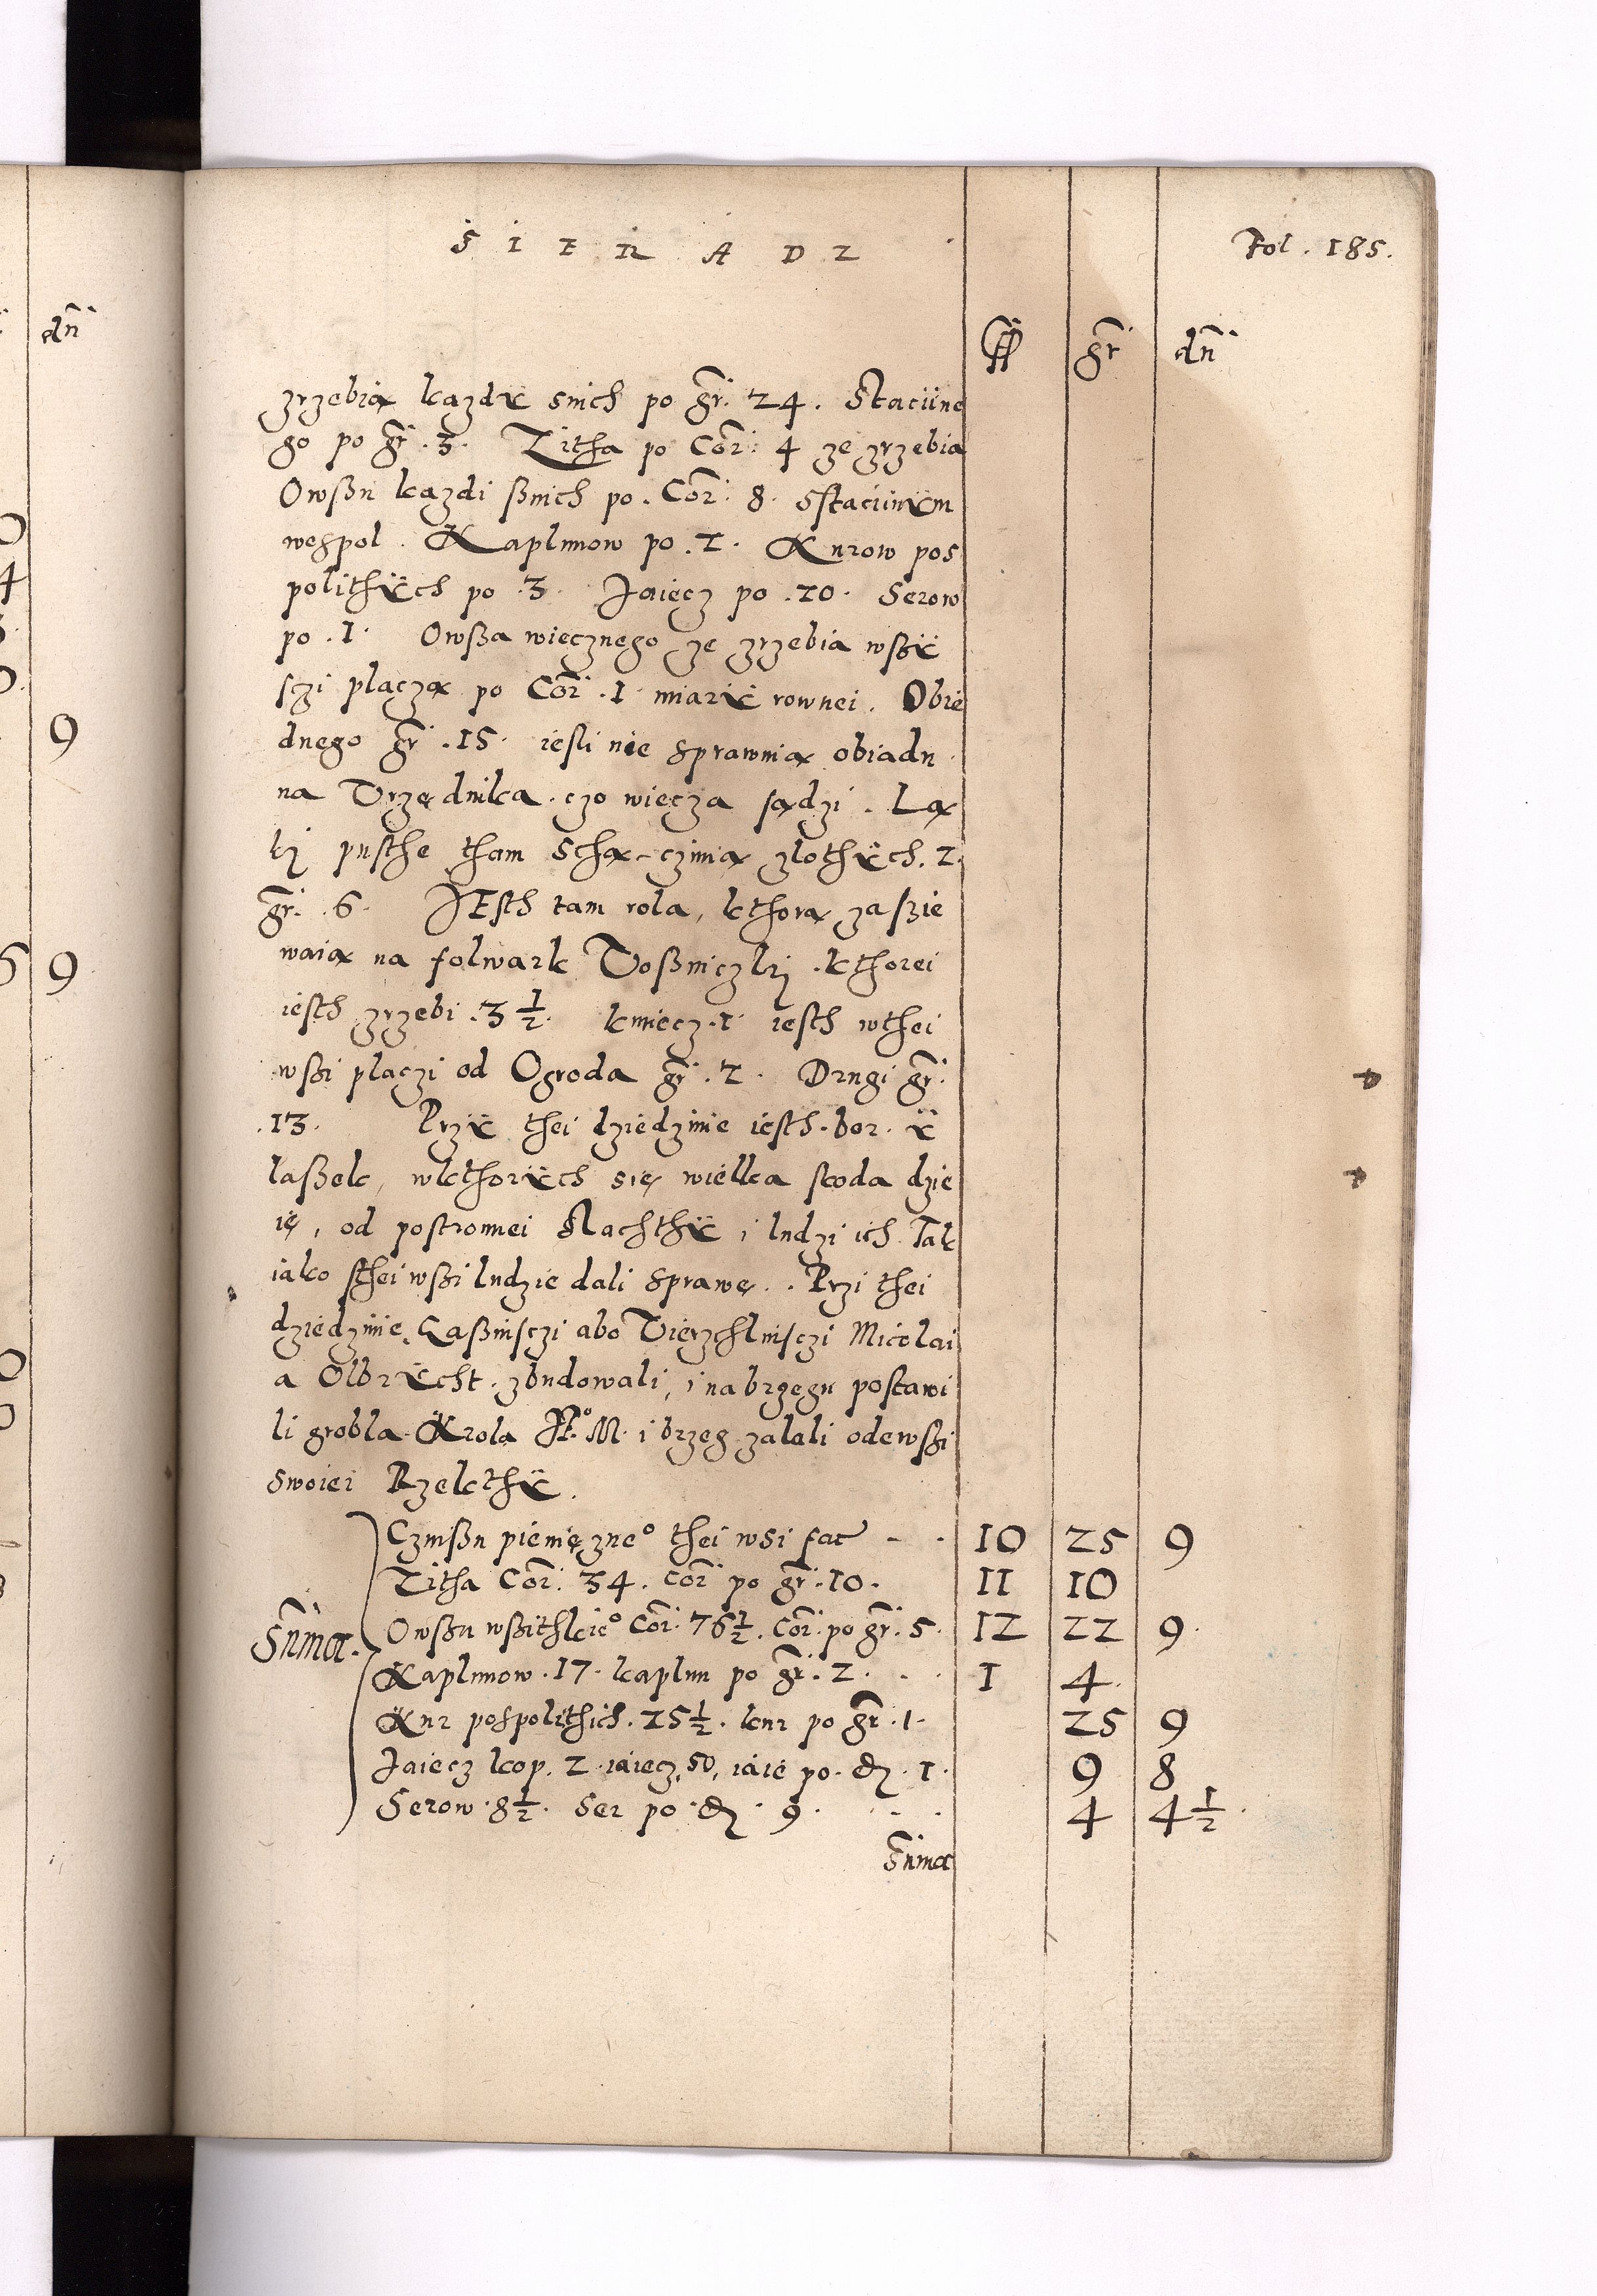 SIERADZ
Fol. 185.
fl gr dn
zrzebia kazdÿ snich po gr. 24. Staciine
go po gr. 3. Zitha po Cor. 4 ze zrzebia
Owßu kazdi ßnich po. Cor. 8. Sstaciinÿm
wespol. Kaplunow po. 2. Kurow pos
polithÿch po .3. Jaiecz po .20. Serow
po .1. Owßa wiecznego ze zrzebia wßÿ
sczi placzą po Cor .1 miarÿ rownei. Obie
dnego gr .15. iesli nie sprawuią obiadu
na Vrzędnika. czo wiecza sądzi. Lą
ki pusthe tham Schą czinią zlothÿch. 2.
gr. 6. JEsth tam rola, kthorą zaßie
waią na folwark Voßniczki .kthorei
iesth zrzebi .3 1/2. kmiecz .1 iesth wthei
wßi placzi od Ogroda gr .2. Drugi gr.
.13. Przÿ thei dziedzinie iesth. bor. ÿ
laßek, wkthorÿch się wielka scoda dzie
ię, od postronnei Slachthÿ i ludzi ich Tak
iako sthei wßi ludzie dali sprawę. Przi thei
dziedzinie Laßinsczi abo Vierzchlinsczi Micolai
a Olbrÿcht. zbudowali, i na brzegu postawi
li grobla Krola Jº. M. i brzeg zalali odewßi
swoiei Rzekthÿ.
Czinßu pieniezneº thei wsi fac - . 10 25 9
Zitha Cor. 34. Cor po gr. 10. 11 10
Suma. Owßu wßithkieº Cor. 76 1/2. Cor. po gr. 5. 12 22 9.
Kaplunow .17. kaplun po gr. 2. 1 4.
Kur pospolithich. 25 1/2. kur po gr. 1. 25 9
Jaiecz kop. 2 iaiecz. 50, iaie po. d. 1. 9 8
Serow. 8 1/2. Ser po. d. 9. 4 4 1/2.
Suma
dn
9
9